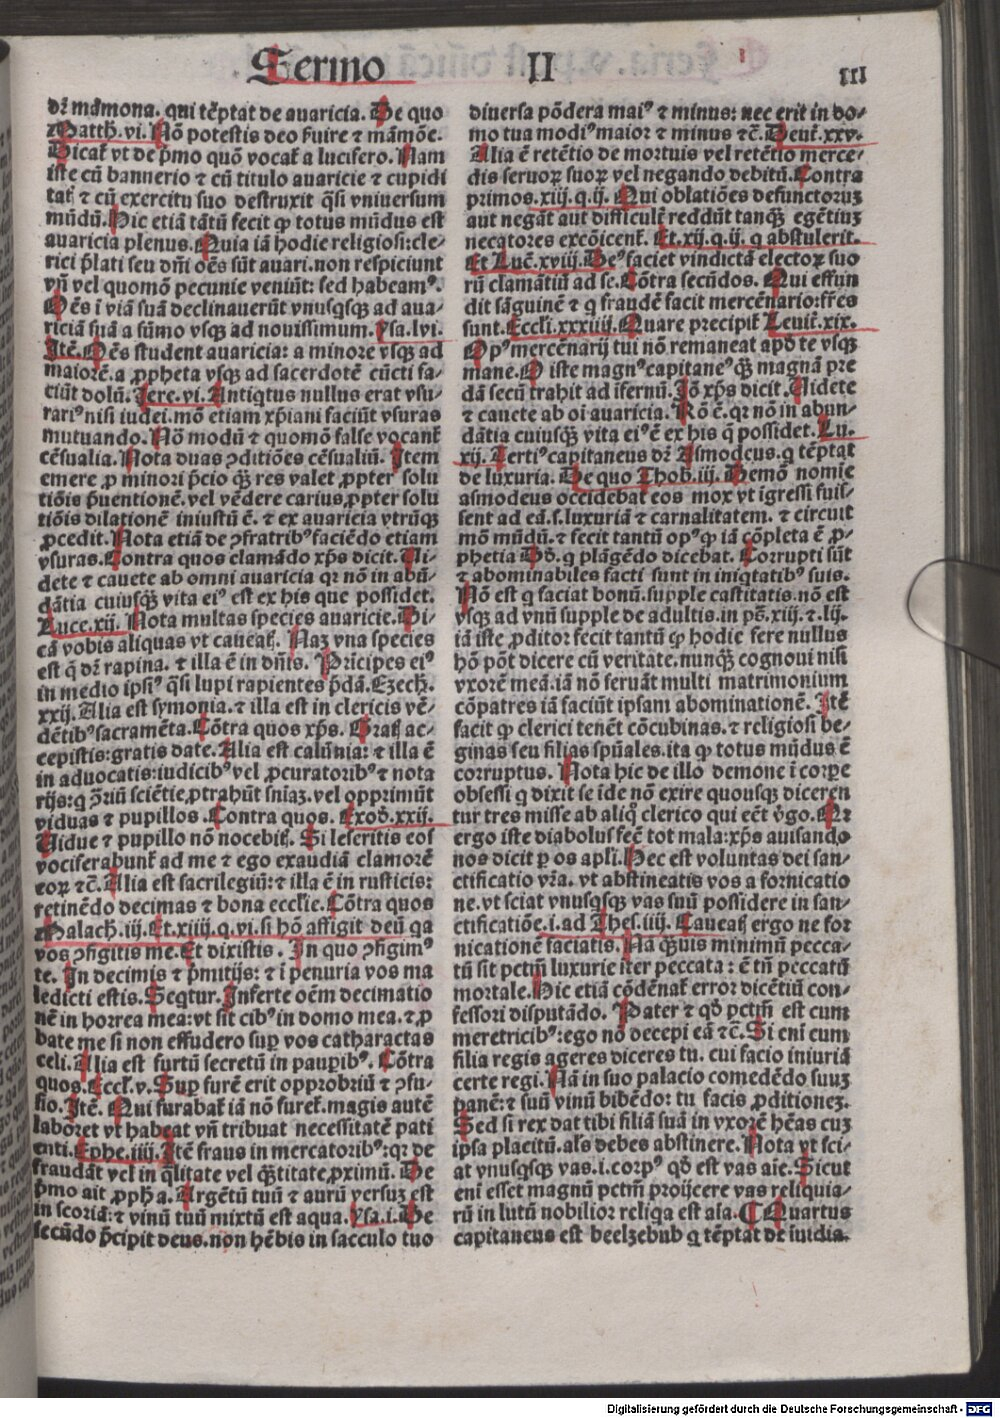 Sermo II III
dr̃ mãmona. qui tẽptat de auaricia. De quo
Matth. vi. Nõ potestis deo ſuire ⁊ mãmõe.
Dicat̃ vt de p̃mo quõ vocat̃ a lucifero. Nam
iste cũ bannerio ⁊ cũ titulo auaricie ⁊ cupidi
tat̃ ⁊ cũ exercitu suo destruxit q̃si vniuersum
mũdũ. Hic etiã tãtũ fecit ꝙ totus mũdus est
auaricia plenus. Quia iã hodie religiosi: cle⸗
rici p̃lati seu dñi oẽs sũt auari. non respiciunt
vñ vel quomõ pecunie veniũt: sed habeamꝰ.
Oẽs ĩ viã suã declinauerũt vnusqsqȝ ad aua⸗
riciã suã a sũmo vsqȝ ad nouissimum. Ysa. lvi.
Itẽ. Oẽs student auaricia: a minore vsqȝ ad
maiorẽ. a ꝓpheta vsqȝ ad sacerdotẽ cũcti fa⸗
ciũt dolũ. Jere. vi. Antiqtus nullus erat vsu⸗
rariꝰ nisi iudei. mõ etiam xp̃iani faciũt vsuras
mutuando. Nõ modũ ⁊ quomõ false vocant̃
cẽsualia. Nota duas ↄditiões cẽsualiũ. Item
emere ꝓ minori p̃cio q̃ȝ res valet ꝓpter solu
tiõis p̃uentionẽ. vel vẽdere carius ꝓpter solu
tiõis dilationẽ iniustũ ẽ. ⁊ ex auaricia vtrũqȝ
ꝓcedit. Nota etiã de ↄfratribꝰ faciẽdo etiam
vsuras. Contra quos clamãdo xp̃s dicit. Ui⸗
dete ⁊ cauete ab omni auaricia qꝛ nõ in abũ⸗
dãtia cuiusq̃ȝ vita eiꝰ est ex his que possidet.
Luce. xij. Nota multas species auaricie. Di⸗
cã vobis aliquas vt caueatȷ. Naȝ vna species
est q̃ dr̃ rapina. ⁊ illa ẽ in dñis. Prĩcipes eiꝰ
in medio ipsiꝰ q̃si lupi rapientes p̃dã. Ezech.
xxij. Alia est symonia. ⁊ illa est in clericis vẽ⸗
dẽtibꝰ sacramẽta. Cõtra quos xp̃s. Gratȷ ac⸗
cepistis: gratis date. Alia est calũnia: ⁊ illa ẽ
in aduocatis: iudicibꝰ vel ꝓcuratoribꝰ ⁊ nota
rijs: q ↄ̃riũ sciẽtie ꝓtrahũt sñiaȝ. vel opprimũt
viduas ⁊ pupillos. Contra quos. Exod̃. xxij.
Uidue ⁊ pupillo nõ nocebitȷ. Si leseritis eos
vociferabunt̃ ad me ⁊ ego exaudiã clamorẽ
eoꝝ ⁊c̃. Alia est sacrilegiũ: ⁊ illa ẽ in rusticis:
retinẽdo decimas ⁊ bona ecclie. Cõtra quos
Malach. iij. Et. xiiij. q. vi. si hõ affigit deũ qa
vos ↄfigitis me. Et dixistis. In quo ↄfigimꝰ
te. In decimis ⁊ p̃mitijs: ⁊ ĩ penuria vos ma
ledicti estis. Seqtur. Inferte oẽm decimatio
nẽ in horrea mea: vt sit cibꝰ in domo mea. ⁊ ꝓ
bate me si non effudero suꝑ vos catharactas
celi. Alia est furtũ secretũ in pauꝑibꝰ. Cõtra
quos. Eccl̃. v. Suꝑ furẽ erit opprobriũ ⁊ ↄfu⸗
sio. Itẽ. Qui furabat̃ iã nõ furet̃. magis autẽ
laboret vt habeat vñ tribuat necessitatẽ pati
enti. Ephe. iiij. Itẽ fraus in mercatoribꝰ: qꝛ de
fraudãt vel in q̃litate vel q̃titate ꝓximũ. De
p̃mo ait ꝓpha. Argẽtũ tuũ ⁊ aurũ versuȝ est
in scoriã: ⁊ vinũ tuũ mixtũ est aqua. Ysa. i. De
secũdo p̃cipit deus. non hẽbis in sacculo tuo
diuersa põdera maiꝰ ⁊ minus: nec erit in do⸗
mo tua modiꝰ maior ⁊ minus ⁊c̃. Deut̃. xxv.
Alia ẽ retẽtio de mortuis vel retẽtio merce⸗
dis seruoꝝ suoꝝ vel negando debitũ. Contra
primos. xiij. q. ij. Qui oblatiões defunctoruȝ
aut negãt aut difficulẽ reddũt tanq̃ȝ egẽtiuȝ
necatores excõicent̃. Et. xij. q. ij. q abstulerit.
Et Luc̃. xviij. Deꝰ faciet vindictã electoꝝ suo
rũ clamãtiũ ad se. Cõtra secũdos. Qui effun
dit sãguinẽ ⁊ q fraudẽ facit mercẽnario: fr̃es
sunt. Eccl̃i. xxxiiij. Quare precipit̃ Leuit̃. xix.
Opꝰ mercẽnarij tui nõ remaneat apõ te vsqȝ
mane. O iste magnꝰ capitaneꝰ q̃ȝ magnã pre
dã secũ trahit ad ĩfernũ. Jõ xp̃s dicit. Uidete
⁊ cauete ab oĩ auaricia. Rõ ẽ. qꝛ nõ in abun⸗
dãtia cuiusq̃ȝ vita eiꝰ ẽ ex his q̃ possidet. Lu.
xij. Tertiꝰ capitaneus dr̃ Asmodeus. q tẽptat
de luxuria. De quo Thob. iij. Demõ nomie
asmodeus occidebat eos mox vt igressi fuis⸗
sent ad eã. s. luxuriã ⁊ carnalitatem. ⁊ circuit
mõ mũdũ. ⁊ fecit tantũ opꝰ ꝙ iã cõpleta ẽ ꝓ⸗
phetia Dõ. q plãgẽdo dicebat. Corrupti sũt
⁊ abominabiles facti sunt in iniqtatibꝰ suis.
Nõ est q faciat bonũ. supple castitatis. nõ est
vsqȝ ad vnũ supple de adultis. in ps̃. xiij. ⁊. lij.
iã iste ꝓditor fecit tantũ ꝙ hodie fere nullus
hõ põt dicere cũ veritate. nunq̃ȝ cognoui nisi
vxorẽ meã. iã nõ seruãt multi matrimonium
cõpatres iã faciũt ipsam abominationẽ. Itẽ
facit ꝙ clerici tenẽt cõcubinas. ⁊ religiosi be⸗
ginas seu filias spũales. ita ꝙ totus mũdus ẽ
corruptus. Nota hic de illo demone ĩ corꝑe
obsessi q dixit se ĩde nõ exire quousqȝ diceren
tur tres misse ab aliq̃ clerico qui eẽt v̾go. Qꝛ
ergo iste diabolus fec̃t tot mala: xp̃s auisando
nos dicit ꝑ os apl̃i. Hec est voluntas dei san⸗
ctificatio vr̃a. vt abstineatis vos a fornicatio
ne. vt sciat vnusqsqȝ vas suũ possidere in san⸗
ctificatiõe. i. ad Thes. iiij. Caueatȷ ergo ne for
nicationẽ faciatis. Nã q̃uis minimũ pecca⸗
tũ sit pctm̃ luxurie iter peccata: ẽ tñ peccatũ
mortale. Hic etiã cõdẽnat̃ error dicẽtiũ con⸗
fessori disputãdo. Pater ⁊ qõ pctm̃ est cum
meretricibꝰ: ego nõ decepi eã ⁊c̃. Si eni cum
filia regis ageres diceres tu. cui facio iniuriã
certe regi. Nã in suo palacio comedẽdo suuȝ
panẽ: ⁊ suũ vinũ bibẽdo: tu facis ꝓditioneȝ.
Sed si rex dat tibi filiã suã in vxorẽ hẽas cuȝ
ipsa placitũ. als̃ debes abstinere. Nota vt sci⸗
at vnusqsqȝ vas. i. corpꝰ qõ est vas aĩe. Sicut
eni esset magnũ pctm̃ proijcere vas reliquia⸗
rũ in lutũ nobilior reliqa est aĩa. ¶ Quartus
capitaneus est beelzebub q tẽptat de iuidia.
Digitalisierung gefördert durch die Deutsche Forschungsgemeinschaft - DFG